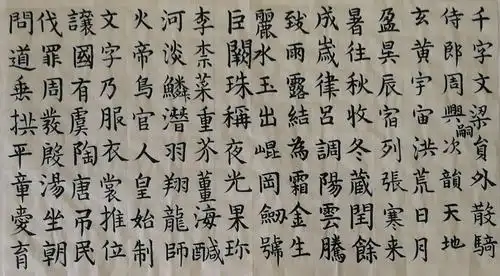 千字文梁貟外散騎
侍郎周興嗣次韻天地
玄黃宇宙洪荒日月
盈昃辰宿列張寒来
暑往秋收冬藏閏餘
成歲律呂調陽雲騰
致雨露結為霜金生
麗水玉出崐岡劒號
巨闕珠稱夜光果珎
李柰菜重芥薑海鹹
河淡鱗潛羽翔龍師
火帝鳥官人皇始制
文字乃服衣裳推位
讓國有虞陶唐吊民
伐罪周發殷湯坐朝
問道垂拱平章愛育